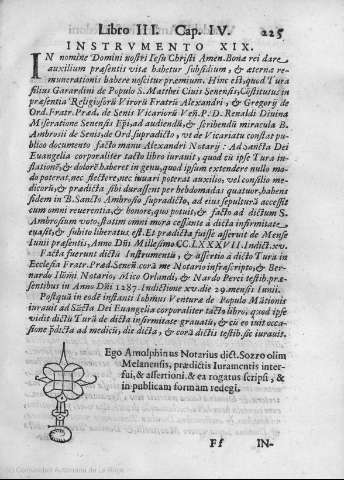 Libro III. Cap. IV. 225
INSTRVMENTO XIX.
IN nomine Domini nostri Iesu Christi Amen. Bona rei dare
auxilium præsentis vitæ habetur subsidium, & æterna re-
munerationis habere noscitur præmium. Hinc est, quod Tura
filius Garardini de Populo S. Matthei Ciuis Senensis, Cōstitutus in
præsentia Religiosorū Virorū Fratrū Alexandri, & Gregorij de
Ord. Fratr. Præd. de Senis Vicariorū Veñ. P. D. Renaldi Diuina
Miseratione Senensis Epi, ad audiendū, & scribendū miracula B.
Ambrosij de Senis, de Ord. supradicto, vt de Vicariatu constat pu-
blico documento facto manu Alexandri Notarij: Ad Sancta Dei
Euangelia corporaliter tacto libro iurauit, quod cū ipse Tura in-
flationē, & dolorē haberet in genu, quod ipsum extendere nullo mo-
do poterat, nec flectere, nec iuuari poterat auxilio, vel consilio me-
dicorū, & prædicta sibi durassent per hebdomadas quatuor, habens
fidem in B. Sancto Ambrosio supradicto, ad eius sepulturā accessit
cum omni reuerentia, & honore, quo potuit, & facto ad dictum S.
Ambrosium voto, statim omni mora cessante a dicta infirmitate
euasit, & subito liberatus est. Et prædicta fuisse asseruit de Mense
Iunij præsentis, Anno Dñi Millesimo CC.LXXXVII. Indict. xv.
Facta fuerunt dictū Instrumentū, & assertio à dicto Tura in
Ecclesia Fratr. Præd. Senēn. corā me Notario infrascripto, & Ber-
nardo Notario, Mico Orlandi, & Nardo Perci testib. præ-
sentibus in Anno Dñi 1287. Indictione xv. die 29. mensis Iunij.
Postquā in eodē instanti Ventura de Populo
iurauit ad Sācta Dei Euangelia corporaliter tacto libro, quod ipse
vidit dictū Turā de dicta infirmitate grauatū, & cū eo iuit occa-
sione p̄dicta ad medicū, dit dicta, & corā dictis testib. sic iurauit.
Ego Arnolphinus Notarius dict. Sozzo olim
Melanensis, prædictis Iuramentis inter-
fui, & assertioni. & ea rogatus scripsi, &
in publicam formam redegi.
Ff IN-
(c) Comunidad Autónoma de La Rioja